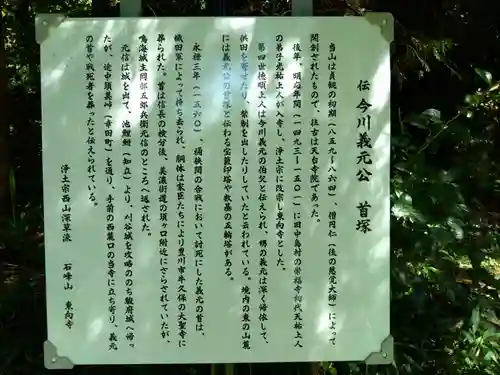 伝今川義元公 首塚
当山は貞観の初期(八五九〜八六四)、僧円仁(後の慈覚大師)によって
開創されたもので、往古は天台寺院であった。
後年、明応年間(一四九三〜一五〇一)に田中島村の崇福寺初代天祐上人
の弟子光祐上人が入寺し、浄土宗に改宗し東向寺とした。
第四世徳順上人は今川義元の伯父と伝えられ、甥の義元は深く帰依して、
供田を寄せたり、禁制を出したりしていたと云われている。境内の東の山麓
には義元公の首塚と伝わる宝篋印塔や数基の五輪塔がある。
永禄三年(一五六〇)、桶狭間の合戦において討死にした義元の首は、
織田軍によって持ち去られ、胴体は家臣たちにより豊川市牛久保の大聖寺に
葬られた。首は信長の検分後、美濃街道の須ヶ口附近にさらされていたが、
鳴海城主岡部五郎兵衛元信のところへ返された。
元信は城を出て、池鯉鮒(知立)より、刈谷城を攻略ののち駿府城へ帰っ
たが、途中須美峠(幸田町)を通り、手前の西麓口の当寺に立ち寄り、義元
の首や戦死者を葬ったと伝えられている。
浄土宗西山深草派 石峰山 東向寺